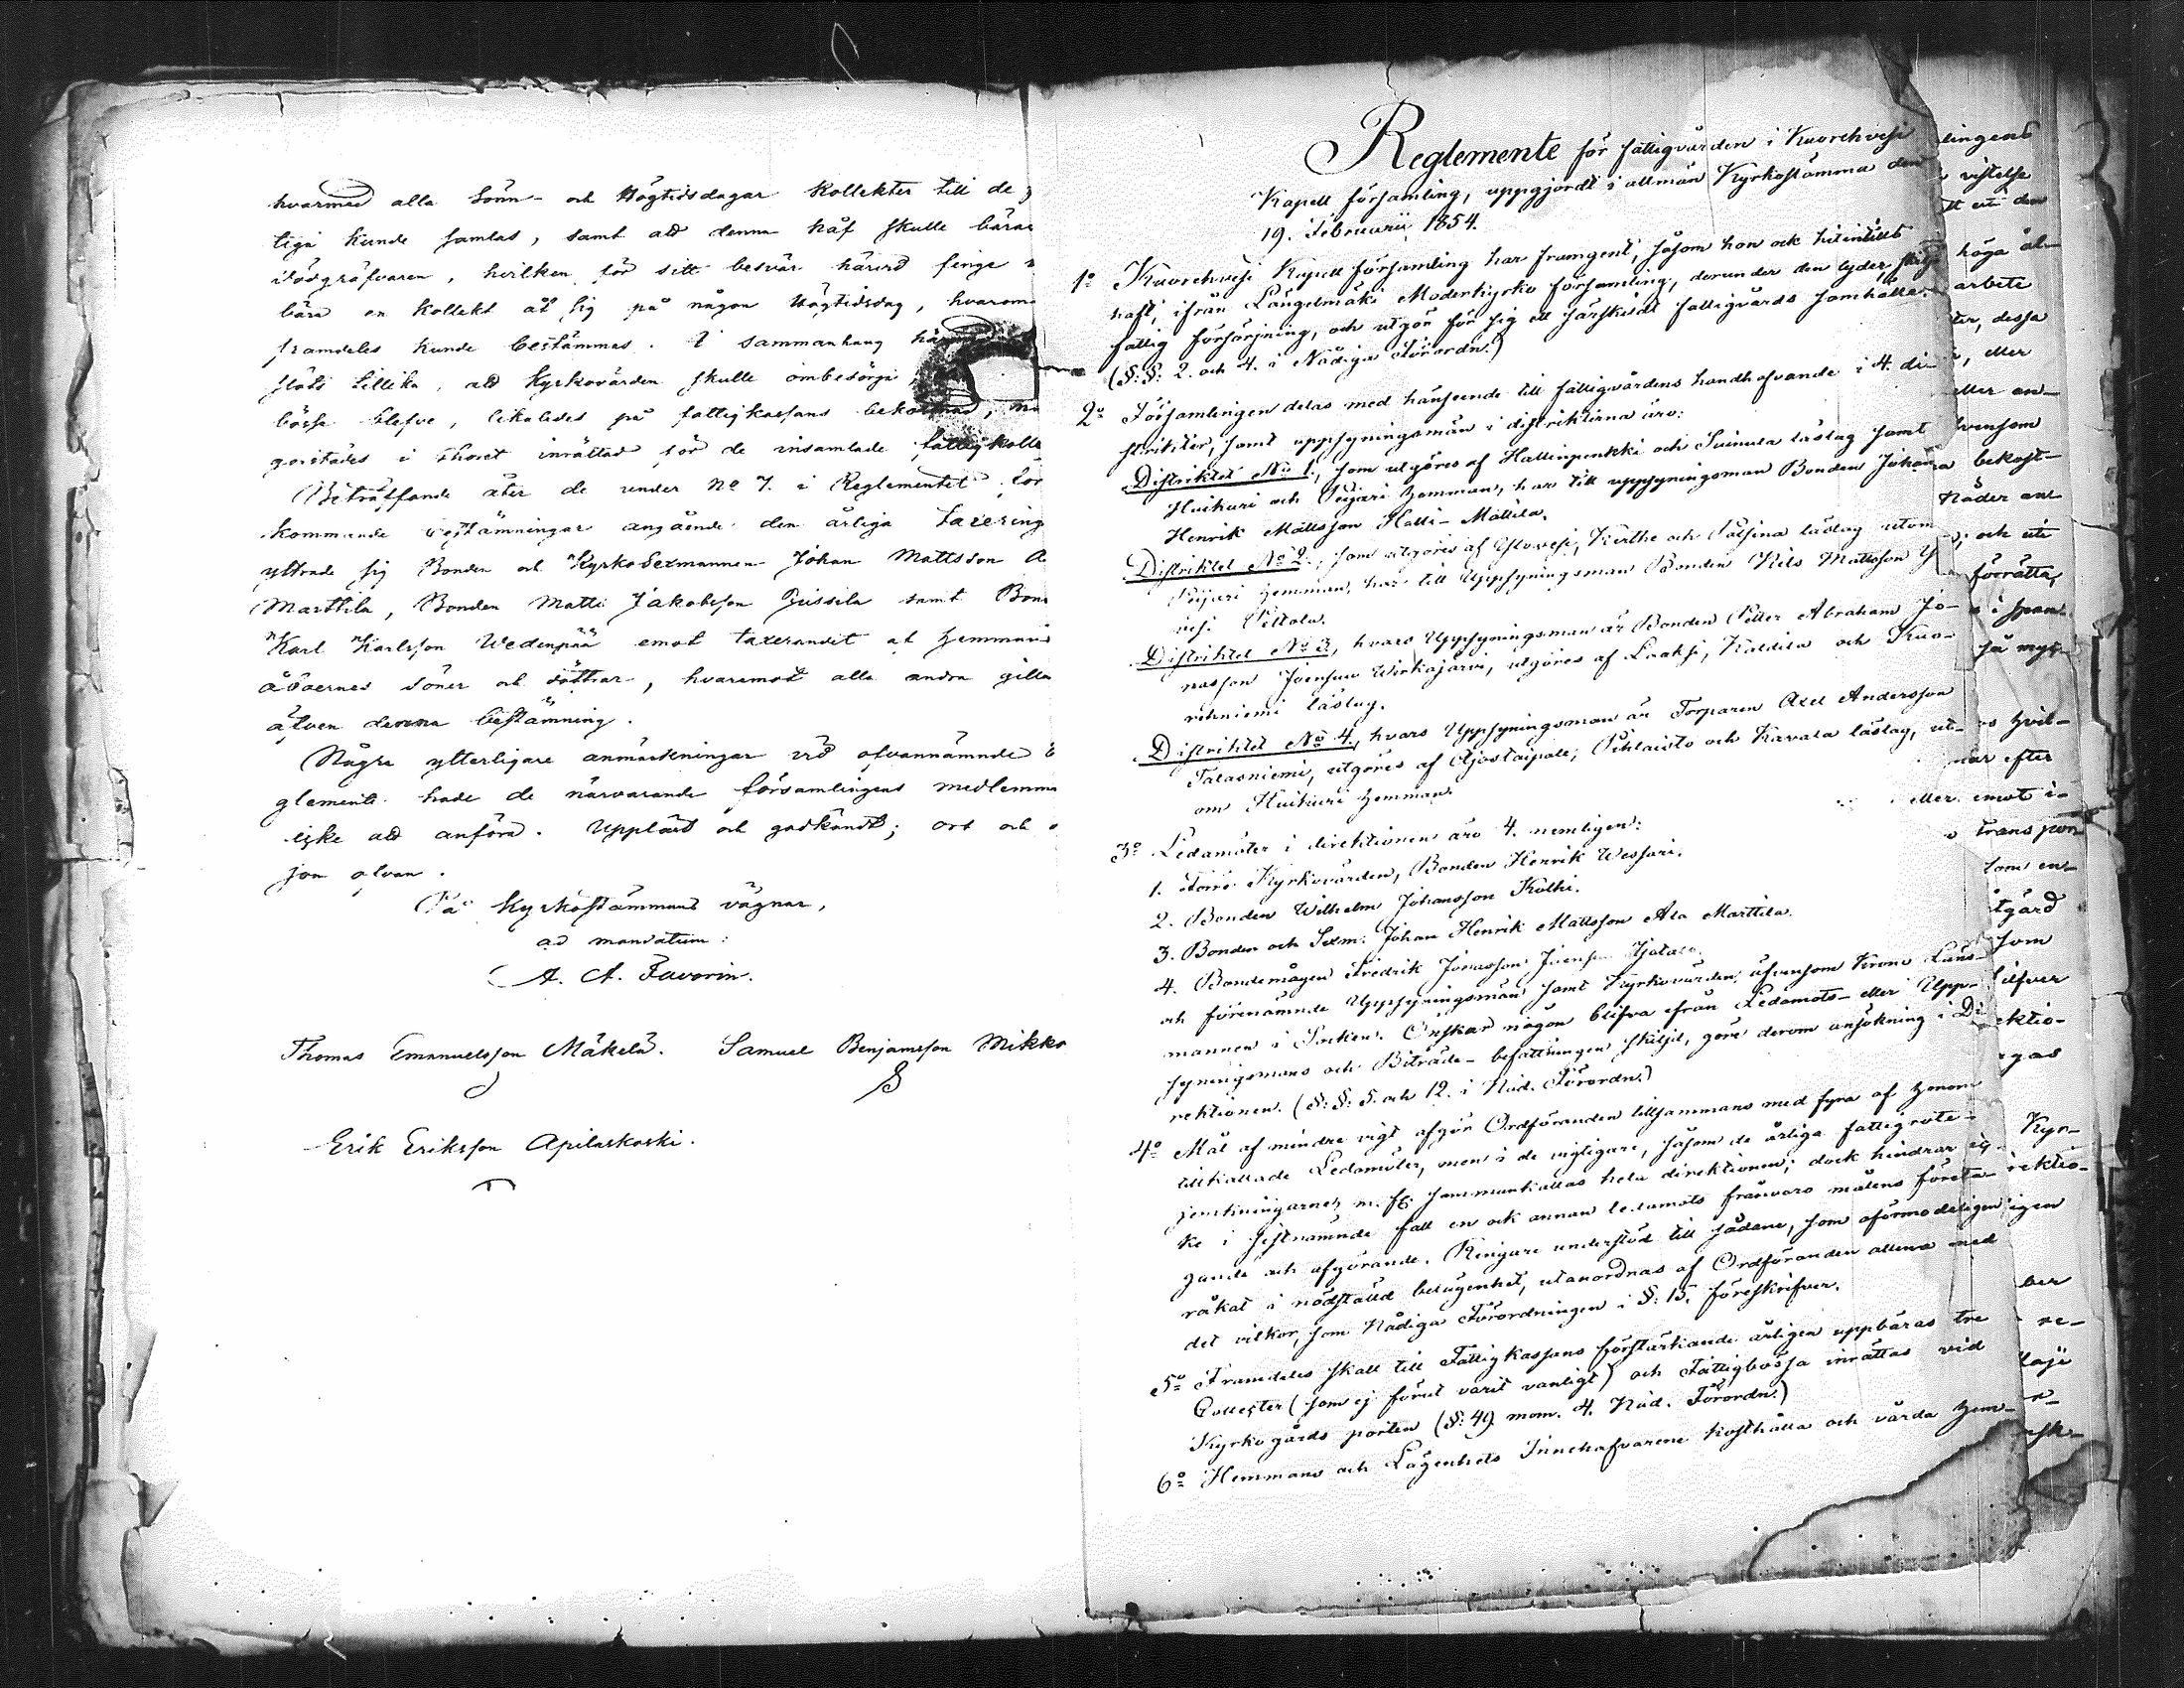 hvarmed alla Sönn- och Högtidsdagar Kollekter till de
tiga kunde samlas, samt att denna håf skulle bäras
dödgräfvaren, hvilken för sitt besvär härvid finge
bära en kollekt åt sig på någon Högtidsdag, hvarom
framdeles kunde bestämmas. I sammanhang
slöts tillika, att Kyrkovärden skulle ombesörja
bössa blefve, likaledes på fattigkassans bekostnad,
i Choret inrättad för de insamlade fattigkolle
Beträffande åter de under No 7. i Reglementet för
kommande bestämningar angående den årliga taxering
yttrade sig Bonden och Kyrko Sexmannen Johan Mattsson A
Marttila, Bonden Matti Jakobsson Jussila samt Bon
Karl Karlsson Wedenpää emot taxerandet af hemmans
åboernes söner och döttrar, hvaremot alla andra gilla
äfven denna bestämning.
Några ytterligare anmärkningar vid ofvannämnde
glemente hade de närvarande församlingens medlemma
icke att anföra. Uppläst och godkändt; ort och
som ofvan.
På Kyrkostämmans vägnar,
ad mandatum:
A. A. Favorin.
Thomas Emanuelsson Mäkelä. Samuel Benjamsson Mikko
Erik Eriksson Apilaskoski.
Reglemente för fattigvården i Kuorehvesi
Kapell församling, uppgjordt i allmän Kyrkostämma den
19. Februarii 1854.
1o Kuorehvesi Kapell församling har framgent, såsom hon ock hitintills
haft, ifrån Längelmäki Moderkyrko församling, derunder den lyder, skild
fattig försörjning, och utgör för sig ett särskildt fattigvårds samhälle.
(§:§: 2. och 4. i Nådiga Förordn.)
2o Församlingen delas med hänseende till fattigvårdens handhafvande i 4. di-
strikter, samt uppsyningsmän i distrikterna äro:
Distriktet No 1., som utgöres af Hallinpenkki och Suinula läslag samt
Huikuri och Peijari hemman, har till uppsyningsman Bonden Johan
Henrik Mattsson Halli-Mattila.
Distriktet No 2., som utgöres af Ylovesi, Kerthe och Pälsina läslag utom
Peijari hemman, har till Uppsyningsman Bonden Nils Mattsson Y
vesi Peltola.
Distriktet No 3, hvars Uppsyningsman är Bonden Petter Abraham Jo-
nasson Joensuu Wirkajärvi, utgöres af Laaksi, Kaldila och Kuo-
rehniemi läslag.
Distriktet No 4, hvars Uppsyningsman är Torparen Axel Andersson
Talasniemi, utgöres af Ajostaipale, Pihlaisto och Kavala läslag, ut-
om Huikuri hemman.
3o Ledamöter i direktionen äro 4. nemligen:
1. Förre Kyrkovärden, Bonden Henrik Wessari.
2. Bonden Wilhelm Johansson Kolhi.
3. Bonden och Sexm: Johan Henrik Mattsson Ala Marttila.
4. Bondemågen Fredrik Jonasson Joensuu
och förenämnde Uppsyningsmän samt Kyrkovärden, äfvensom Krono Läns-
mannen i Socken. Önskar någon blifva ifrån Ledamots- eller Upp-
syningsmans och Biträde-befattningen skiljd, göre derom ansökning i Di
rektionen. (§:§: 5. och 12. i Nåd. Förordn.)
4o Mål af mindre vigt afgör Ordföranden tillsammans med fyra af honom
tillkallade Ledamöter, men i de vigtigare, såsom de årliga fattigrote-
jemkningarne, m. fl. sammankallas hela direktionen; dock hindrar ic-
ke i sistnämnde fall en och annan ledamots frånvaro målens företa-
gande och afgörande. Ringare understöd till sådane, som oförmodeligen
råkat i nödställd belägenhet, utanordnas af Ordföranden allena med
det vilkor, som Nådiga Förordningen i §: 15. föreskrifver.
5o Framdeles skall till Fattigkassans förstärkande årligen uppbäras tre
Collecter (som ej förut varit vanligt) och Fattigbössa inrättas vid
Kyrkogårds porten (§: 49 mom. 4. Nåd. Förordn.)
6o Hemmans och Lägenhets Innehafvarene kosthålla och vårda hem-
lingens
vistelse
uti den
höga ål-
arbete
dessa
eller
eller an-
bekost-
och uti
förrätta,
så myc-
hvil-
efter
eller emot i-
transpor
som en-
som
ektio-
Kyr-
rektio-